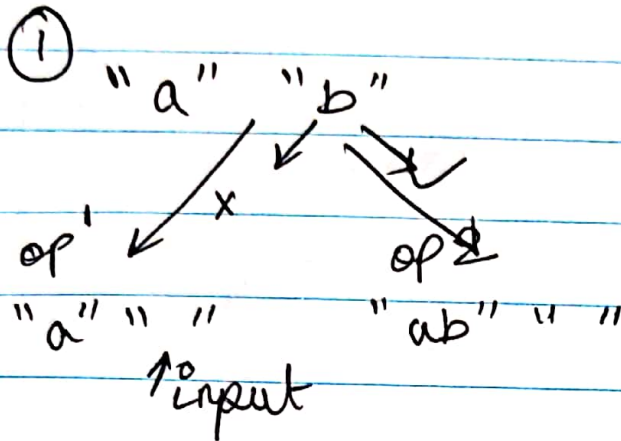 1
"a" "b"
x
op1 op2
"a" " " "ab" " "
input